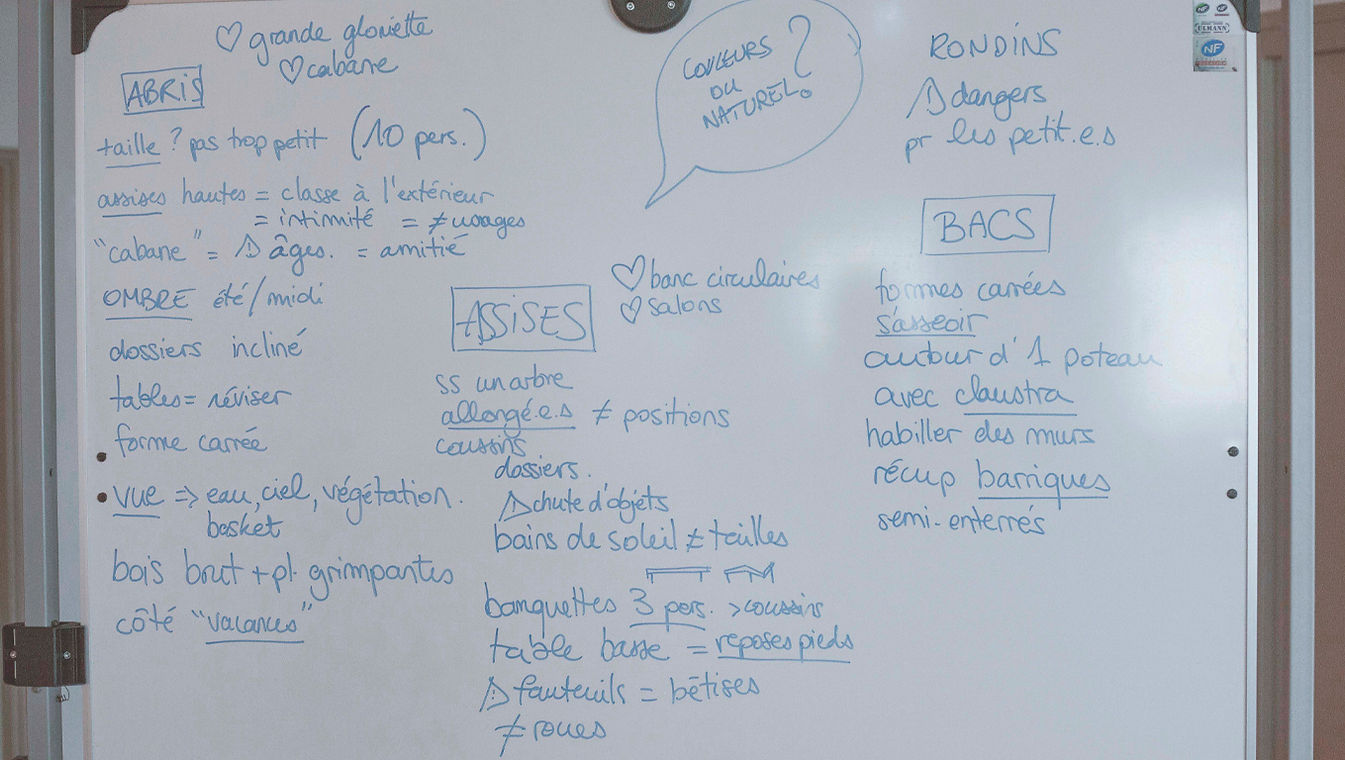 ♡ grande gloriette
♡ cabane
ABRIS
taille ? pas trop petit (10 pers.)
assises hautes = classe à l'extérieur
= intimité = ≠ usages
"cabane" = ⚠ âges. = amitié
OMBRE été/midi
dossiers incliné
tables = réviser
forme carrée
vue => eau, ciel, végétation.
basket
bois brut + pl. grimpantes
côté "vacances"
COULEURS
OU
NATUREL ?
♡ banc circulaires
♡ salons
ASSISES
ss un arbre
allongé.e.s ≠ positions
coussins
dossiers.
⚠ chute d'objets
bains de soleil ≠ tailles
banquettes 3 pers. > coussins
table basse = reposes pieds
⚠ fauteuils = bêtises
≠ roues
RONDINS
⚠ dangers
pr les petit.e.s
BACS
formes carrées
s'asseoir
autour d'1 poteau
avec claustra
habiller des murs
récup barriques
semi-enterrés
NF
NF
ULMANN
NF